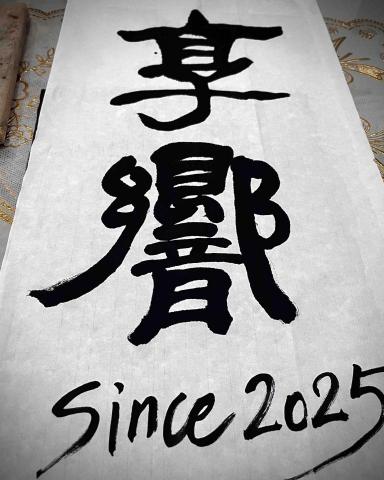 享
響
Since 2025